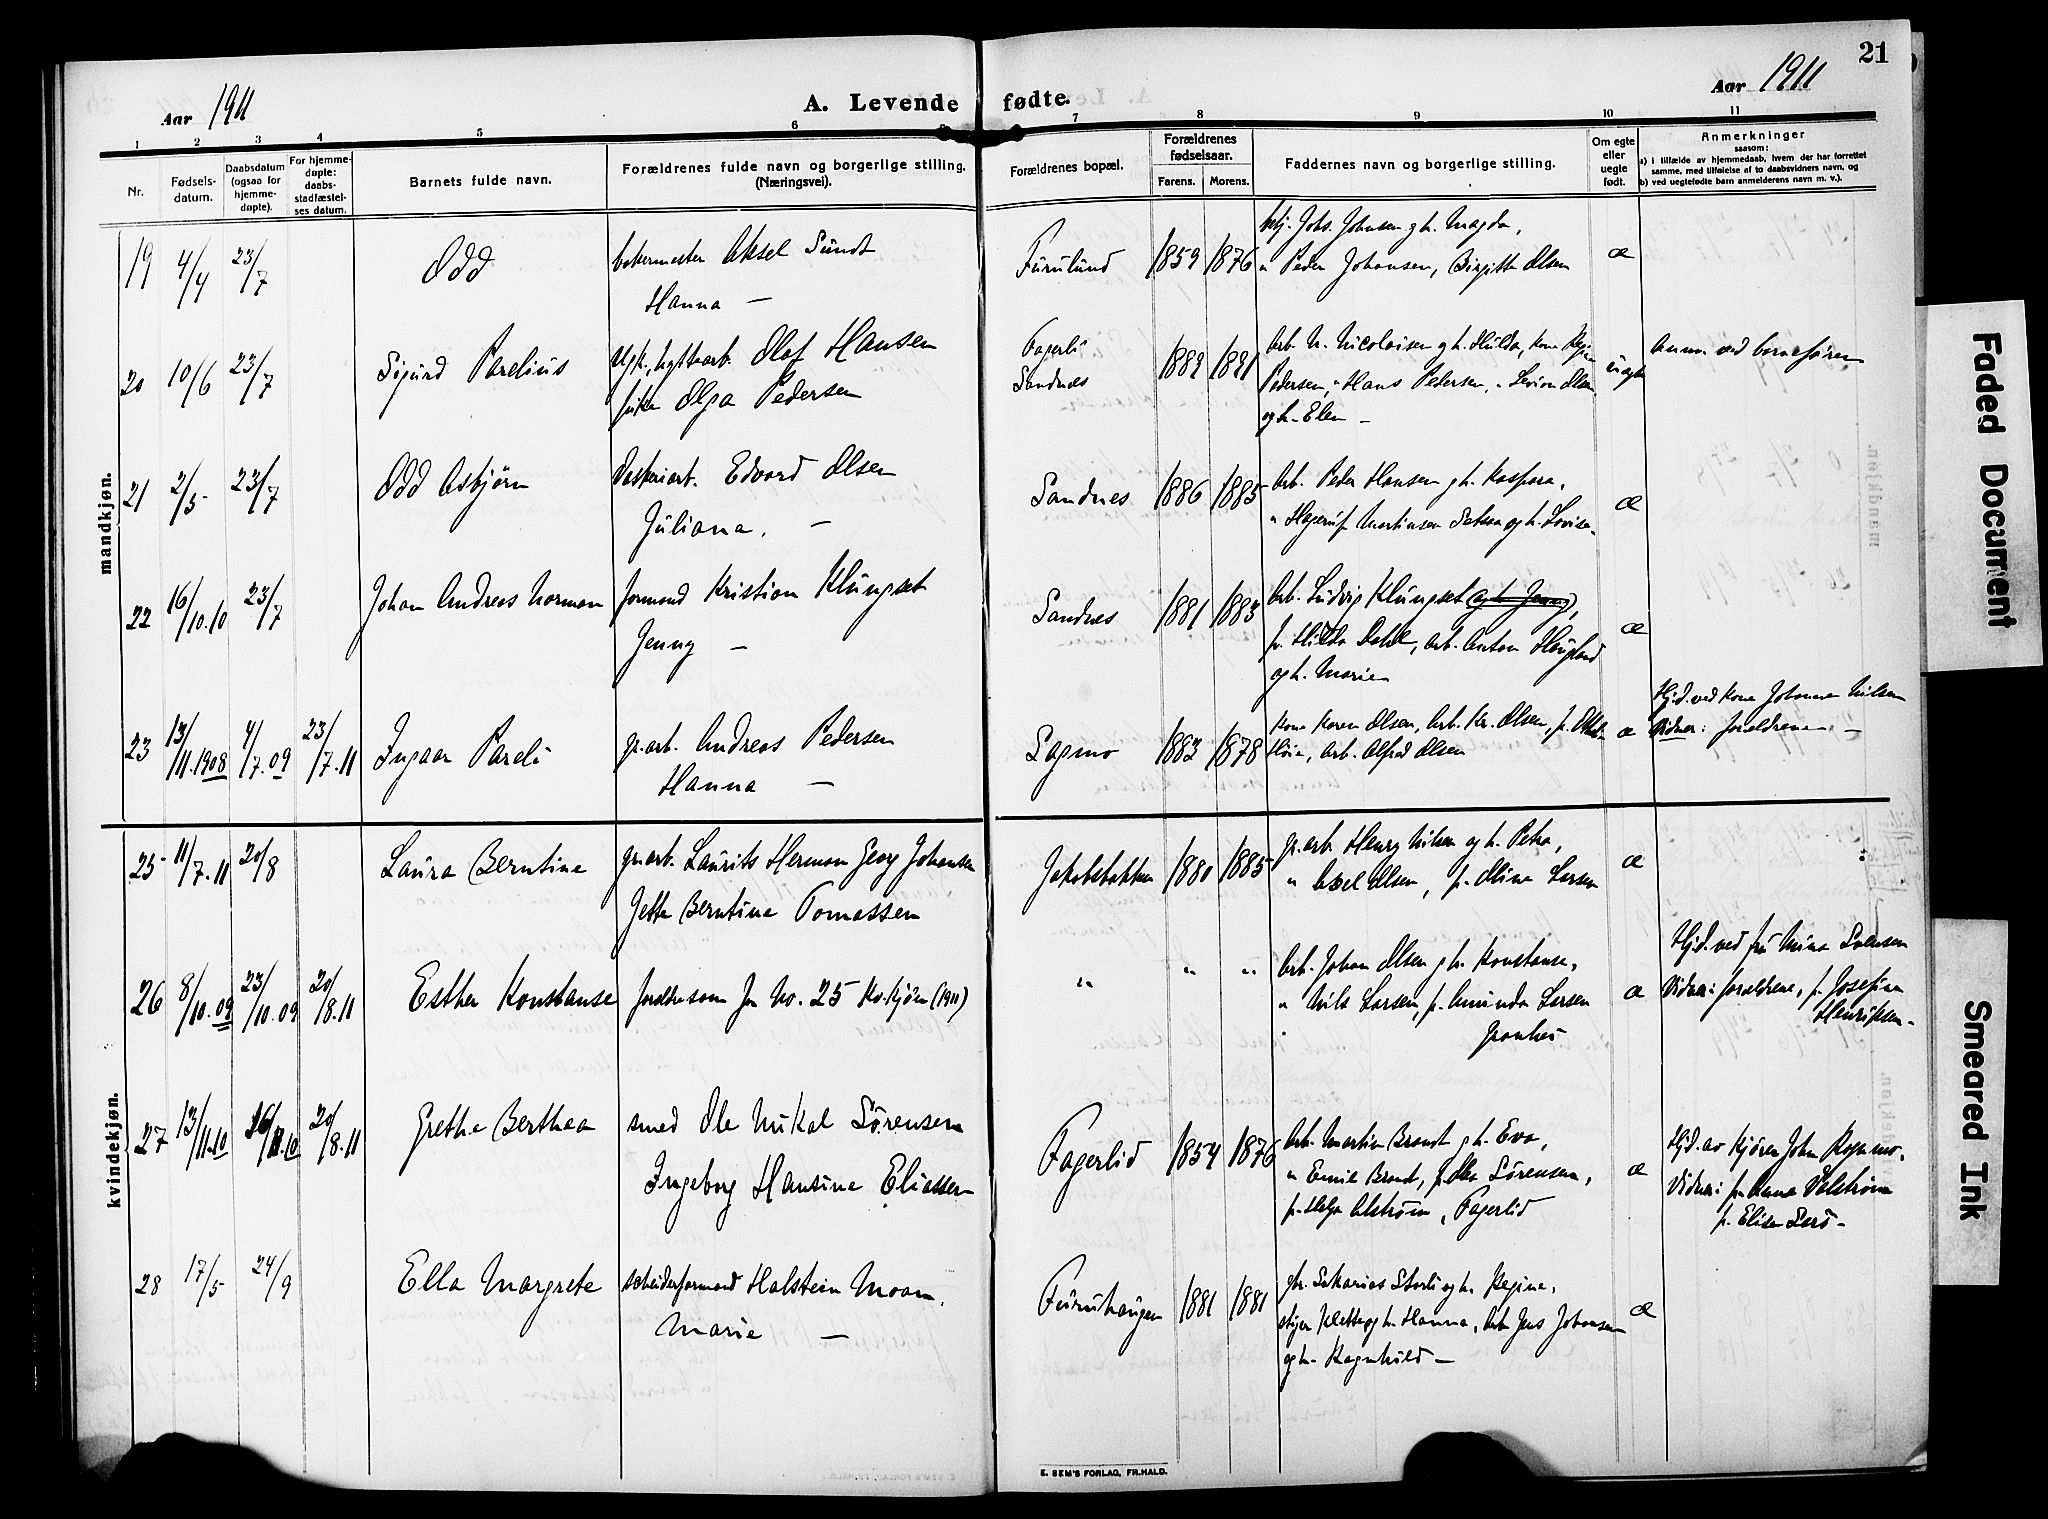 21
Aar 1911
A. Levende fødte.
Aar 1911
1 2 3 4 5 6 7 8 9 10 11
Nr.
Fødsels-
datum.
Daabsdatum
(ogsaa for
hjemme-
døpte).
For hjemme-
døpte:
daabs-
stadfæstel-
ses datum.
Barnets fulde navn.
Forældrenes fulde navn og borgerlige stilling.
(Næringsvei).
Forældrenes bopæl.
Forældrenes
fødselsaar.
Farens. Morens.
Faddernes navn og borgerlige stilling.
Om egte
eller
uegte
født.
Anmerkninger
saasom:
a) i tilfælde av hjemmedaab, hvem der har forrettet
samme, med tilføielse af to daabsvidners navn, og
b) ved uegtefødte barn anmelderens navn m. v.).
mandkjøn.
19 4/4 23/7 Odd
bakermester Aksel Sundt
Hanna —
Furulund 1859 1876
Johs. Johnsen og h. Magda,
" Peder Johansen, Birgitte Olsen
æ
20 10/6 23/7 Sigurd Parelius
Ugk., hyttearb. Olaf Hansen
Olga Pedersen
Fagerli
Sandnes
1889 1891
Arb. N. Nicolaisen og h. Hulda, kone
Pedersen, " Hans Pedersen, Olsen
og h. Elen —
uægte
Anm. ved
21 2/5 23/7 Odd Asbjørn
Edvard Olsen
Juliana. —
Sandnes 1886 1885
Arb. Peder Hansen og h. Kaspara,
" Hagerup Martinsen og h. Lovise
æ
22 16/10.10 23/7 Johan Andreas Norman
formand Kristian Klungset
Jenny —
Sandnes 1881 1883
Arb. Ludvig Klungset (og h. Jenny),
p. Hilda Dahl, arb. Anton Haugland
og h. Marie
æ
23 13/11.1908 4/7.09 23/7.11 Ingvar Pareli
gr.arb. Andreas Pedersen
Hanna —
Sagmo 1883 1878
Kone Karen Olsen, Arb. Kr. Olsen, p.
Høie, Arb. Alfred Olsen
æ
Hjd. ved kone Johanna Nilsen
Vidner: forældrene —
kvindekjøn.
25 11/7.11 20/8 Laura Berntine
gr.arb. Laurits Herman Georg Johansen
Jette Berntine Tomassen
Jakobsbakken 1880 1885
gr.arb. Henry Nilsen og h. Petra,
" Axel Olsen, p. Oline Larsen
æ
26 8/10.09 23/10.09 20/8.11 Esther Konstanse
forældre som for No. 25 Kv.kjøn (1911)
" " "
Arb. Johan Olsen og h. Konstanse,
" Nils Larsen, p. Aminda Larsen
æ
Hjd. ved fru Mina Svensen
Vidner: forældrene, p. Josefine
Henriksen —
27 13/11.10 16/11.10 20/8.11 Grethe Berthea
smed Ole Mikal Sørensen
Ingeborg Hansine Eliassen
Fagerlid 1854 1876
Arb. Martin Brandt og h. Eva,
" Emil Brandt, p. Olea Sørensen,
p. Helga Alstrøm, Fagerlid
æ
Hjd. av John Rognmo.
Vidner: p. Anna
p. Elise
28 17/5 24/9 Ella Margrete
scheiderformand Halstein Moan.
Marie —
Furuhaugen 1881 1881
gr. Sakarias Storli og h. Regine,
stiger Klette og h. Hanna, Arb. Jens Johansen
og h. Ragnhild —
æ
E. SEM'S FORLAG, FR.HALD.
Faded Document
Smeared Ink